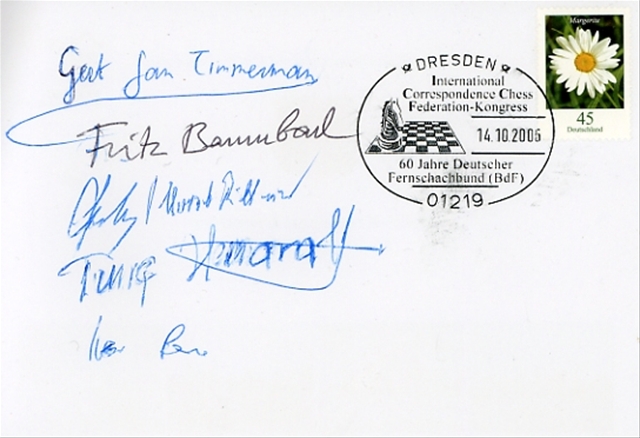 Gert Jan Timmerman
Fritz Baumbach
Horst Rittner
Tunç Hamarat
Ivar Bern
DRESDEN
International
Correspondence Chess
Federation-Kongress
14.10.2006
60 Jahre Deutscher
Fernschachbund (BdF)
01219
Margerite
45
Deutschland